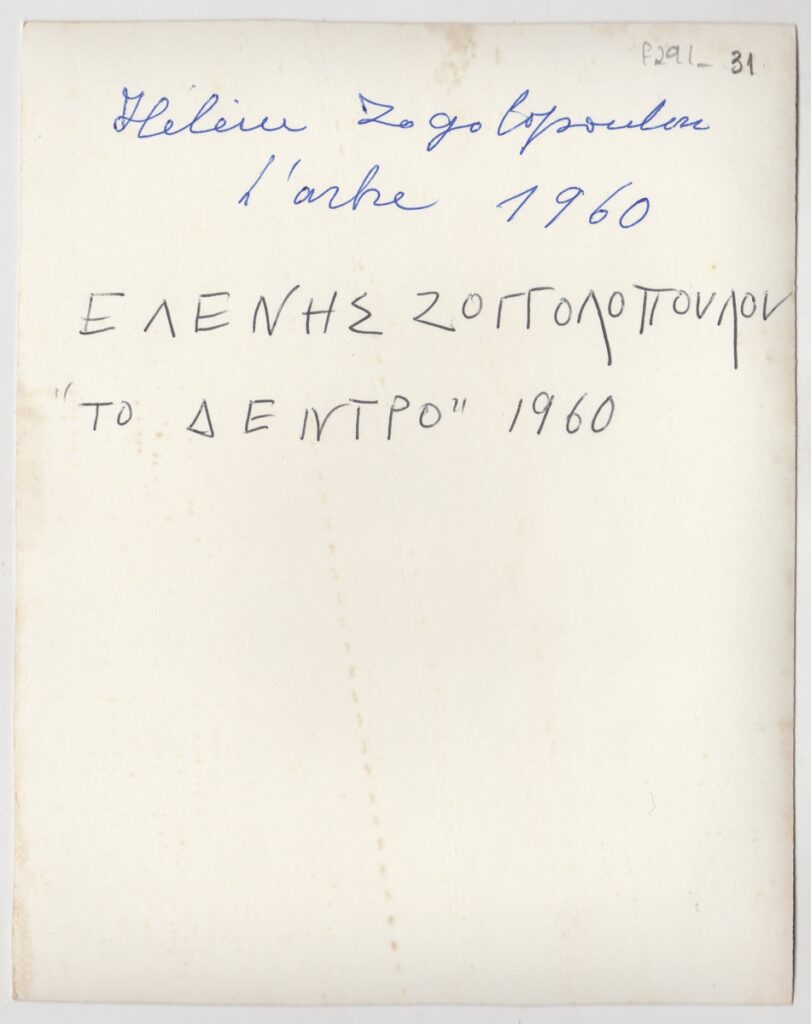 F291_ 31
Hélène Zogolopoulou
L'arbre 1960
ΕΛΕΝΗΣ ΖΟΓΓΟΛΟΠΟΥΛΟΥ
"ΤΟ ΔΕΝΤΡΟ" 1960